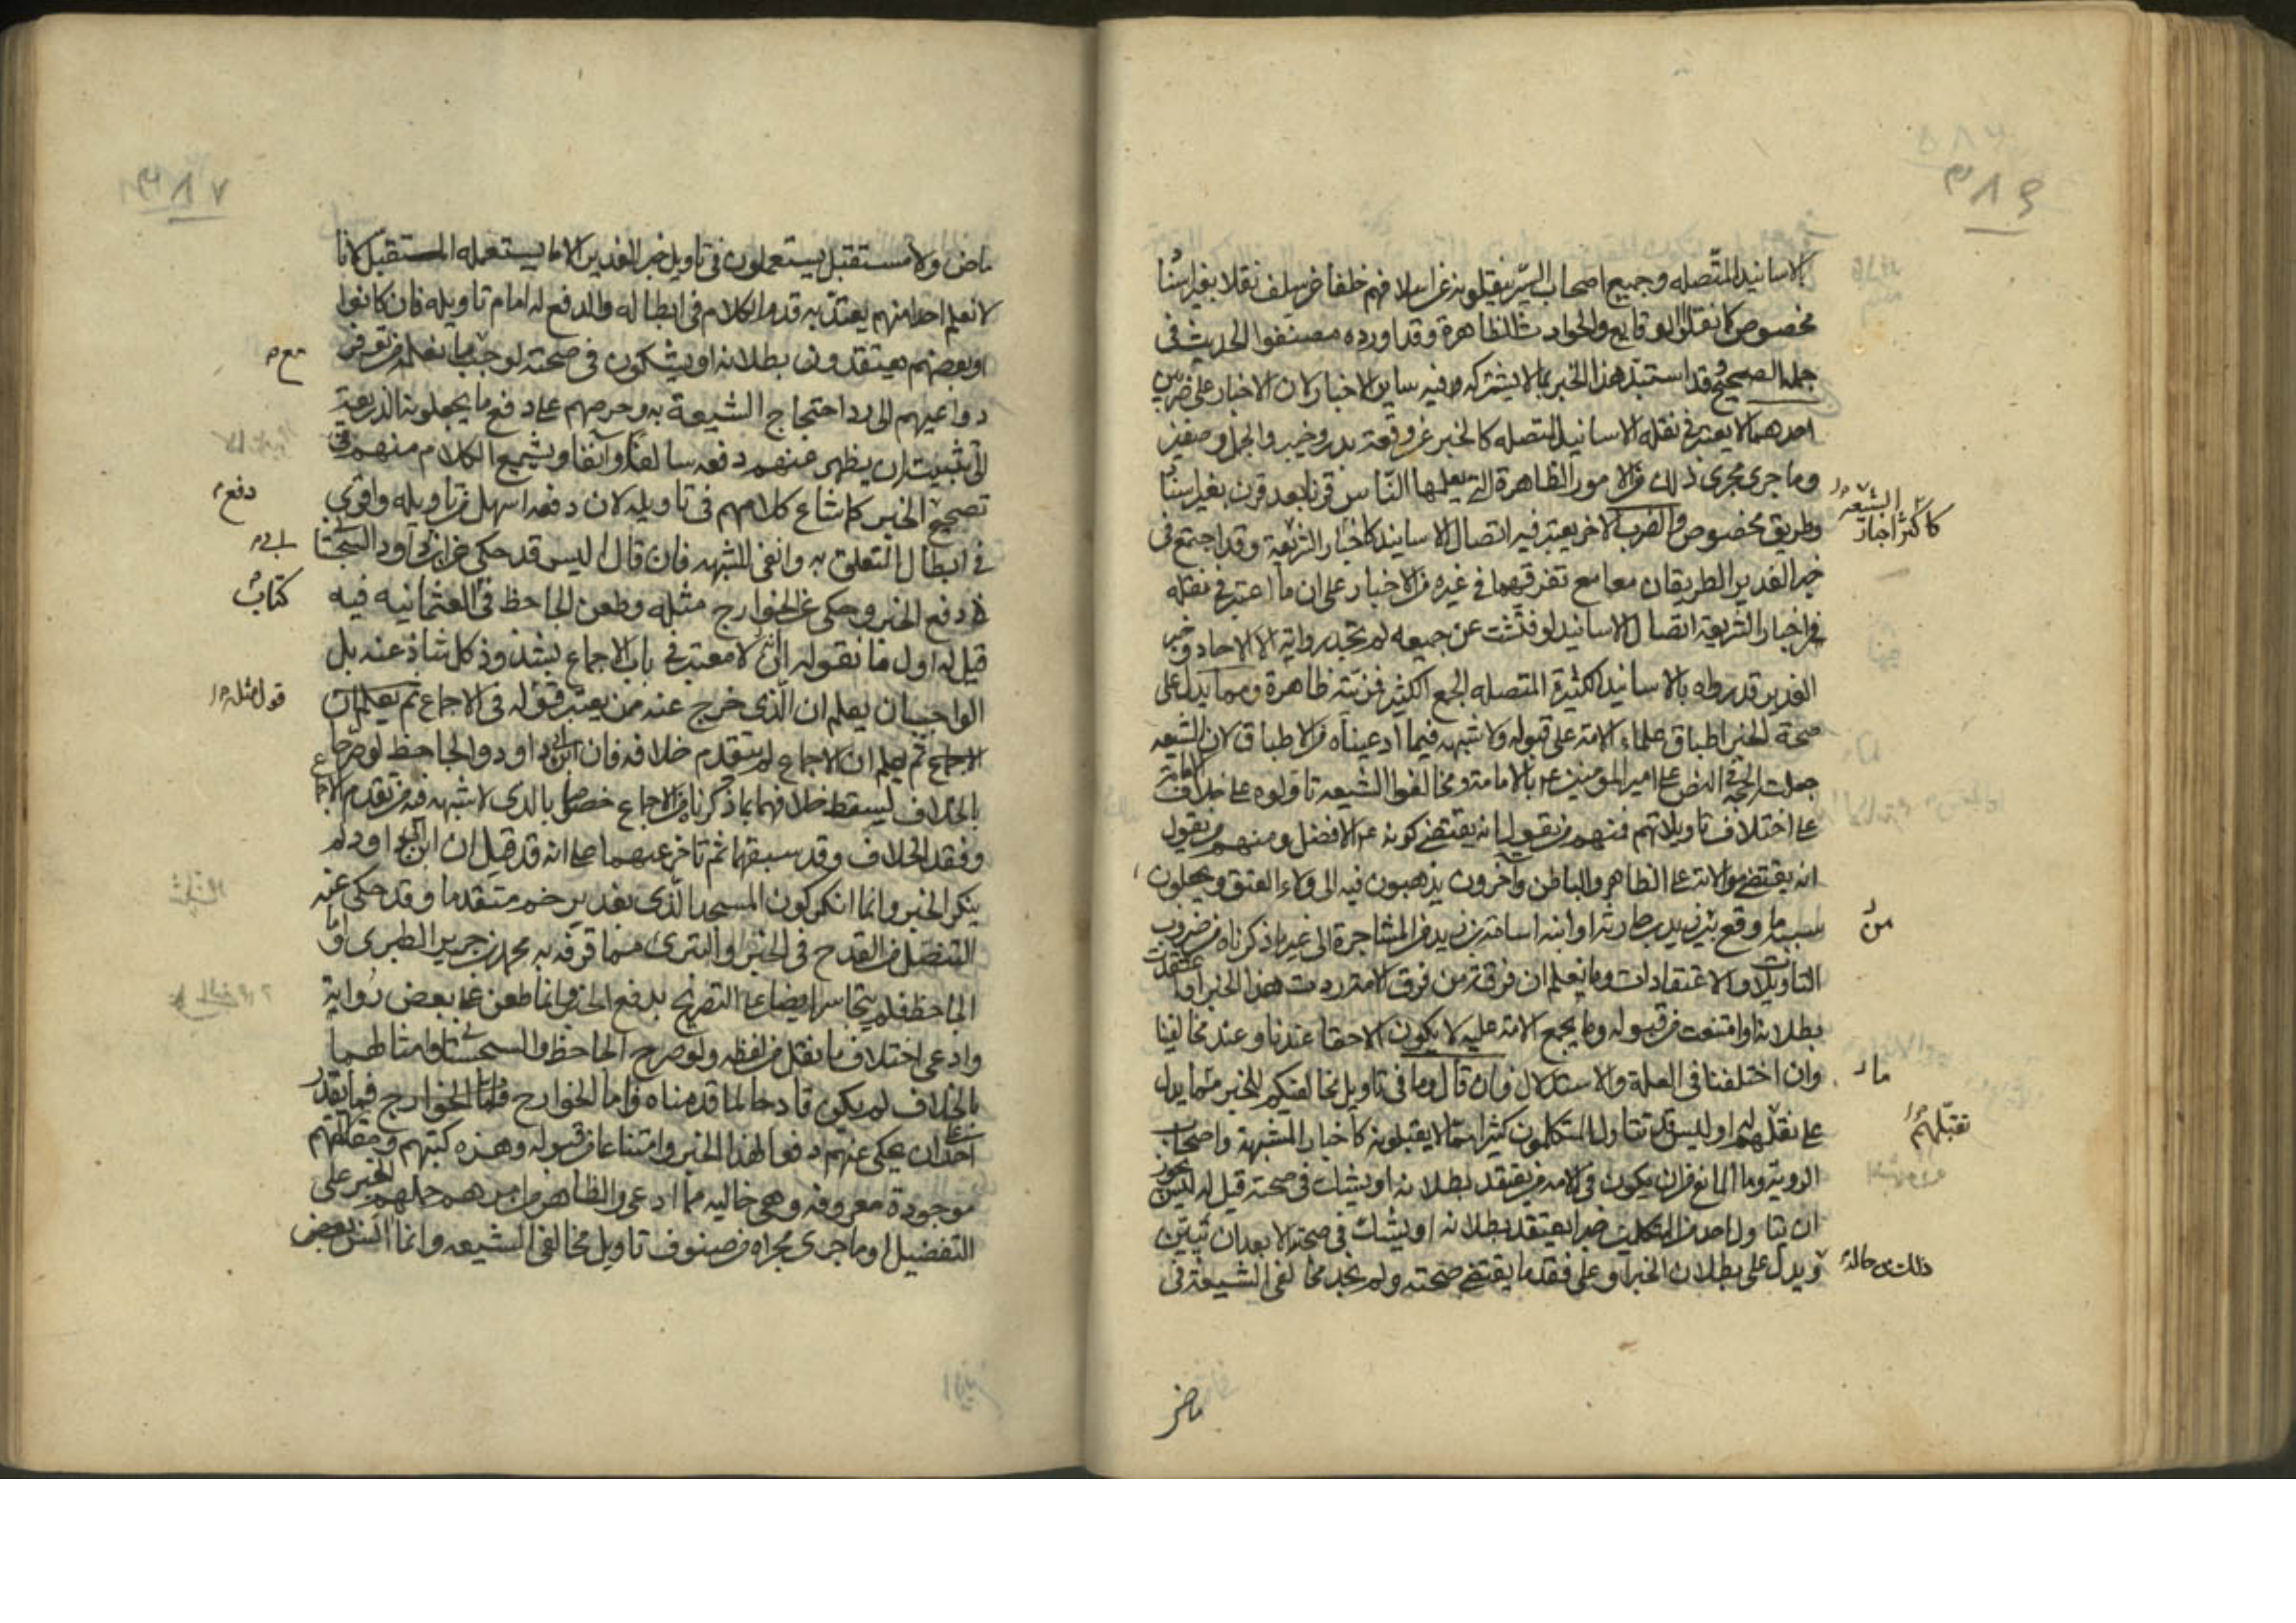 ٣٨٦
الاسانيد المتّصله وجميع اصحاب السّير ينقلونه عن اسلافهم خلفا عن سلف نقلا بغير اسناد
مخصوص كما نقلوا الوقايع والحوادث الظاهرة وقد اورده مصنفوا الحديث فى
جملة الصحيح وقد استبدّ هذا الخبر بما لا يشركه فيه ساير الاخبار لان الاخبار على ضربين
احدهما لا يعتبر فى نقله الاسانيد المتصله كالخبر عن وقعة بدر وخيبر والجمل وصفين
وما جرى مجرى ذلك من الامور الظاهرة التى يعلمها النّاس قرنا بعد قرن بغير اسناد
وطريق مخصوص والضرب الاخر يعتبر فيه اتصال الاسانيد كاخبار الشريعة وقد اجتمع فى
كاكثر اخبار الشيعة
خبر الغدير الطريقان معا مع تفرقهما فى غيره من الاخبار على ان ما اعتبر فى نقله
من اخبار الشريعة اتصال الاسانيد لو فتّشت عن جميعه لم تجد رواية الا الاحاد وخبر
الغدير قد رواه بالاسانيد الكثيرة المتصله الجمع الكثير فمزيته ظاهرة ومما يدل على
صحة الخبر اطباق علماء الامة على قبوله ولا شبهه فيما ادعيناه من الاطباق لان الشيعه
جعلته الحجة فى النص على امير المؤمنين ع بالامامة ومخالفوا الشيعه تاولوه على خلاف الامامة
على اختلاف تاويلاتهم فمنهم من يقول انه يقتضى كونه ع الافضل ومنهم من يقول
انه يقتضى موالاته على الظاهر والباطن وآخرون يذهبون فيه الى ولاء العتق ويجعلون
سببه ما وقع بين زيد بن حارثه او ابنه اسامة بن زيد من المشاجرة الى غير ما ذكرناه من ضروب
من
التاويلات والاعتقادات وما نعلم ان فرقة من فرق الامة ردت هذا الخبر او اعتقدت
بطلانه او امتنعت من قبوله وما يجمع الامة عليه لا يكون الا حقا عندنا وعند مخالفينا
وان اختلفنا فى العلة والاستدلال فان قال وما فى تاويل مخالفيكم للخبر مما يدل
ما
على تقبلهم له اوليس قد تتاول المتكلمون كثيرا مما لا يقبلونه كاخبار المشبهة واصحاب
تقبّلهم
الروية وما المانع من ان يكون فى الامة من يعتقد بطلانه او يشك فى صحته قيل له ليس يجوز
ان يتاول احد من المتكلمين خبرا يعتقد بطلانه او يشك فى صحته الا بعد ان تبيّن
ويدل على بطلان الخبر او على فقد ما يقتضى صحته ولم نجد مخالفى الشيعة فى
ذلك من حاله
ماض
٣٨٧
ماض ولا مستقبل يستعملون فى تاويل خبر الغدير الا ما يستعمله المستقبل لانا
لا نعلم احدا منهم يعتدّ به قدم الكلام فى ابطاله والدفع له امام تاويله فان كانوا
او بعضهم يعتقدون بطلانه او يشكون فى صحته لوجب ما نعلمه من توفر
مع
دواعيهم الى رد احتجاج الشيعة به وحرصهم على دفع ما يجعلونه الذريعة
الى تثبيته ان يظهر عنهم دفعه سالفا وآنفا ويشيع الكلام منهم فى
تصحيح الخبر كما شاع كلامهم فى تاويله لان دفعه اسهل من تاويله واقوى
دفع
فى ابطال التعلق به وانفى للشبهه فان قال اليس قد حكى عن ابن ابى داود السجستانى
ابى
فى دفع الخبر وحكى عن الخوارج مثله وطعن الجاحظ فى العثمانيه فيه
كتاب
قيل له اول ما نقوله انه لا معتبر فى باب الاجماع بشذوذ كل شاذ عنه بل
الواجب ان يعلم ان الّذى خرج عنه ممن يعتبر قوله فى الاجماع ثم يعلم ان
قول مثله
الاجماع ثم يعلم ان الاجماع لم يتقدم خلافه فان ابن ابى داود والجاحظ لو صرحا
بالخلاف ليسقط خلافهما بما ذكرناه من الاجماع خصوصا بالذى لا شبهه فيه من تقدم الاجماع
وفقد الخلاف وقد سبقهما ثم تاخر عنهما على انه قد قيل ان ابن ابى داود لم
ينكر الخبر وانما انكر كون المسجد الّذى بغدير خم متقدما وقد حكى عنه
التنصل من القدح فى الخبر والتبرى مما قرفه به محمد بن جرير الطبرى واما
الجاحظ فلم يتجاسر ايضا على التصريح بدفع الخبر وانما طعن على بعض رواية
وادعى اختلاف ما نقل من لفظه ولو صرح الجاحظ والسجستانى وامثالهما
بالخلاف لم يكن قادحا لما قدمناه واما الخوارج فما يقدر
احد ان يحكى عنهم دفعا لهذا الخبر وامتناعا من قبوله وهذه كتبهم ومقالاتهم
موجودة معروفه وهى خاليه مما ادعى والظاهر من امرهم حملهم الخبر على
التفضيل وما جرى مجراه من صنوف تاويل مخالفى الشيعه وانما انس بعض